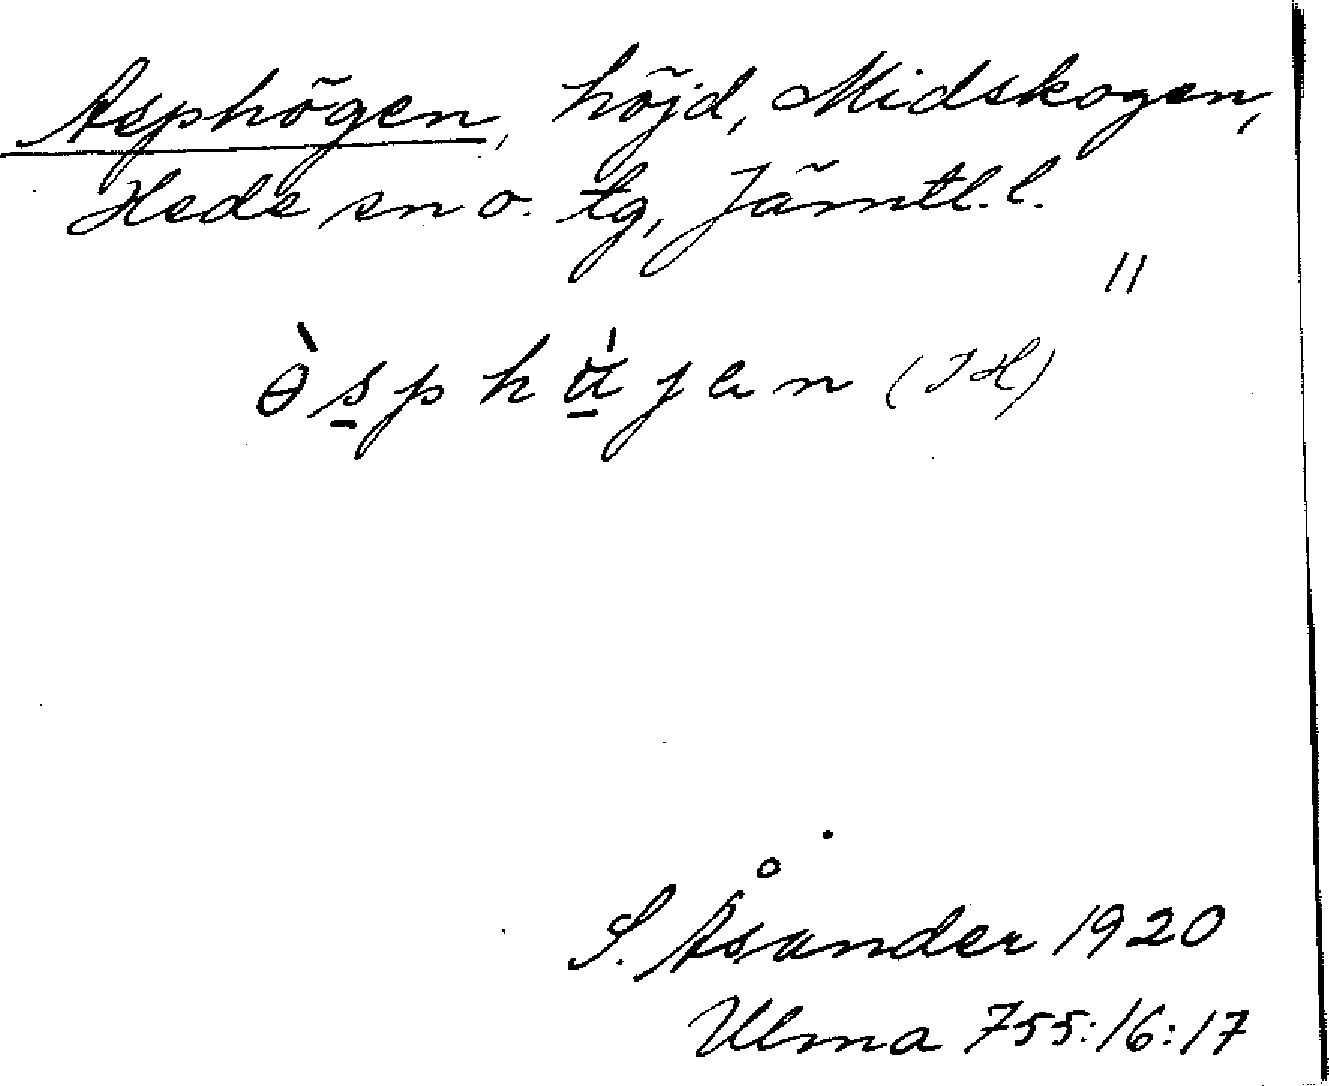 Asphögen, höjd, Midskogen,
Hede sn o. tg, Jämtl. l.
//
S. Åsander 1920
Ulma 755:16:17